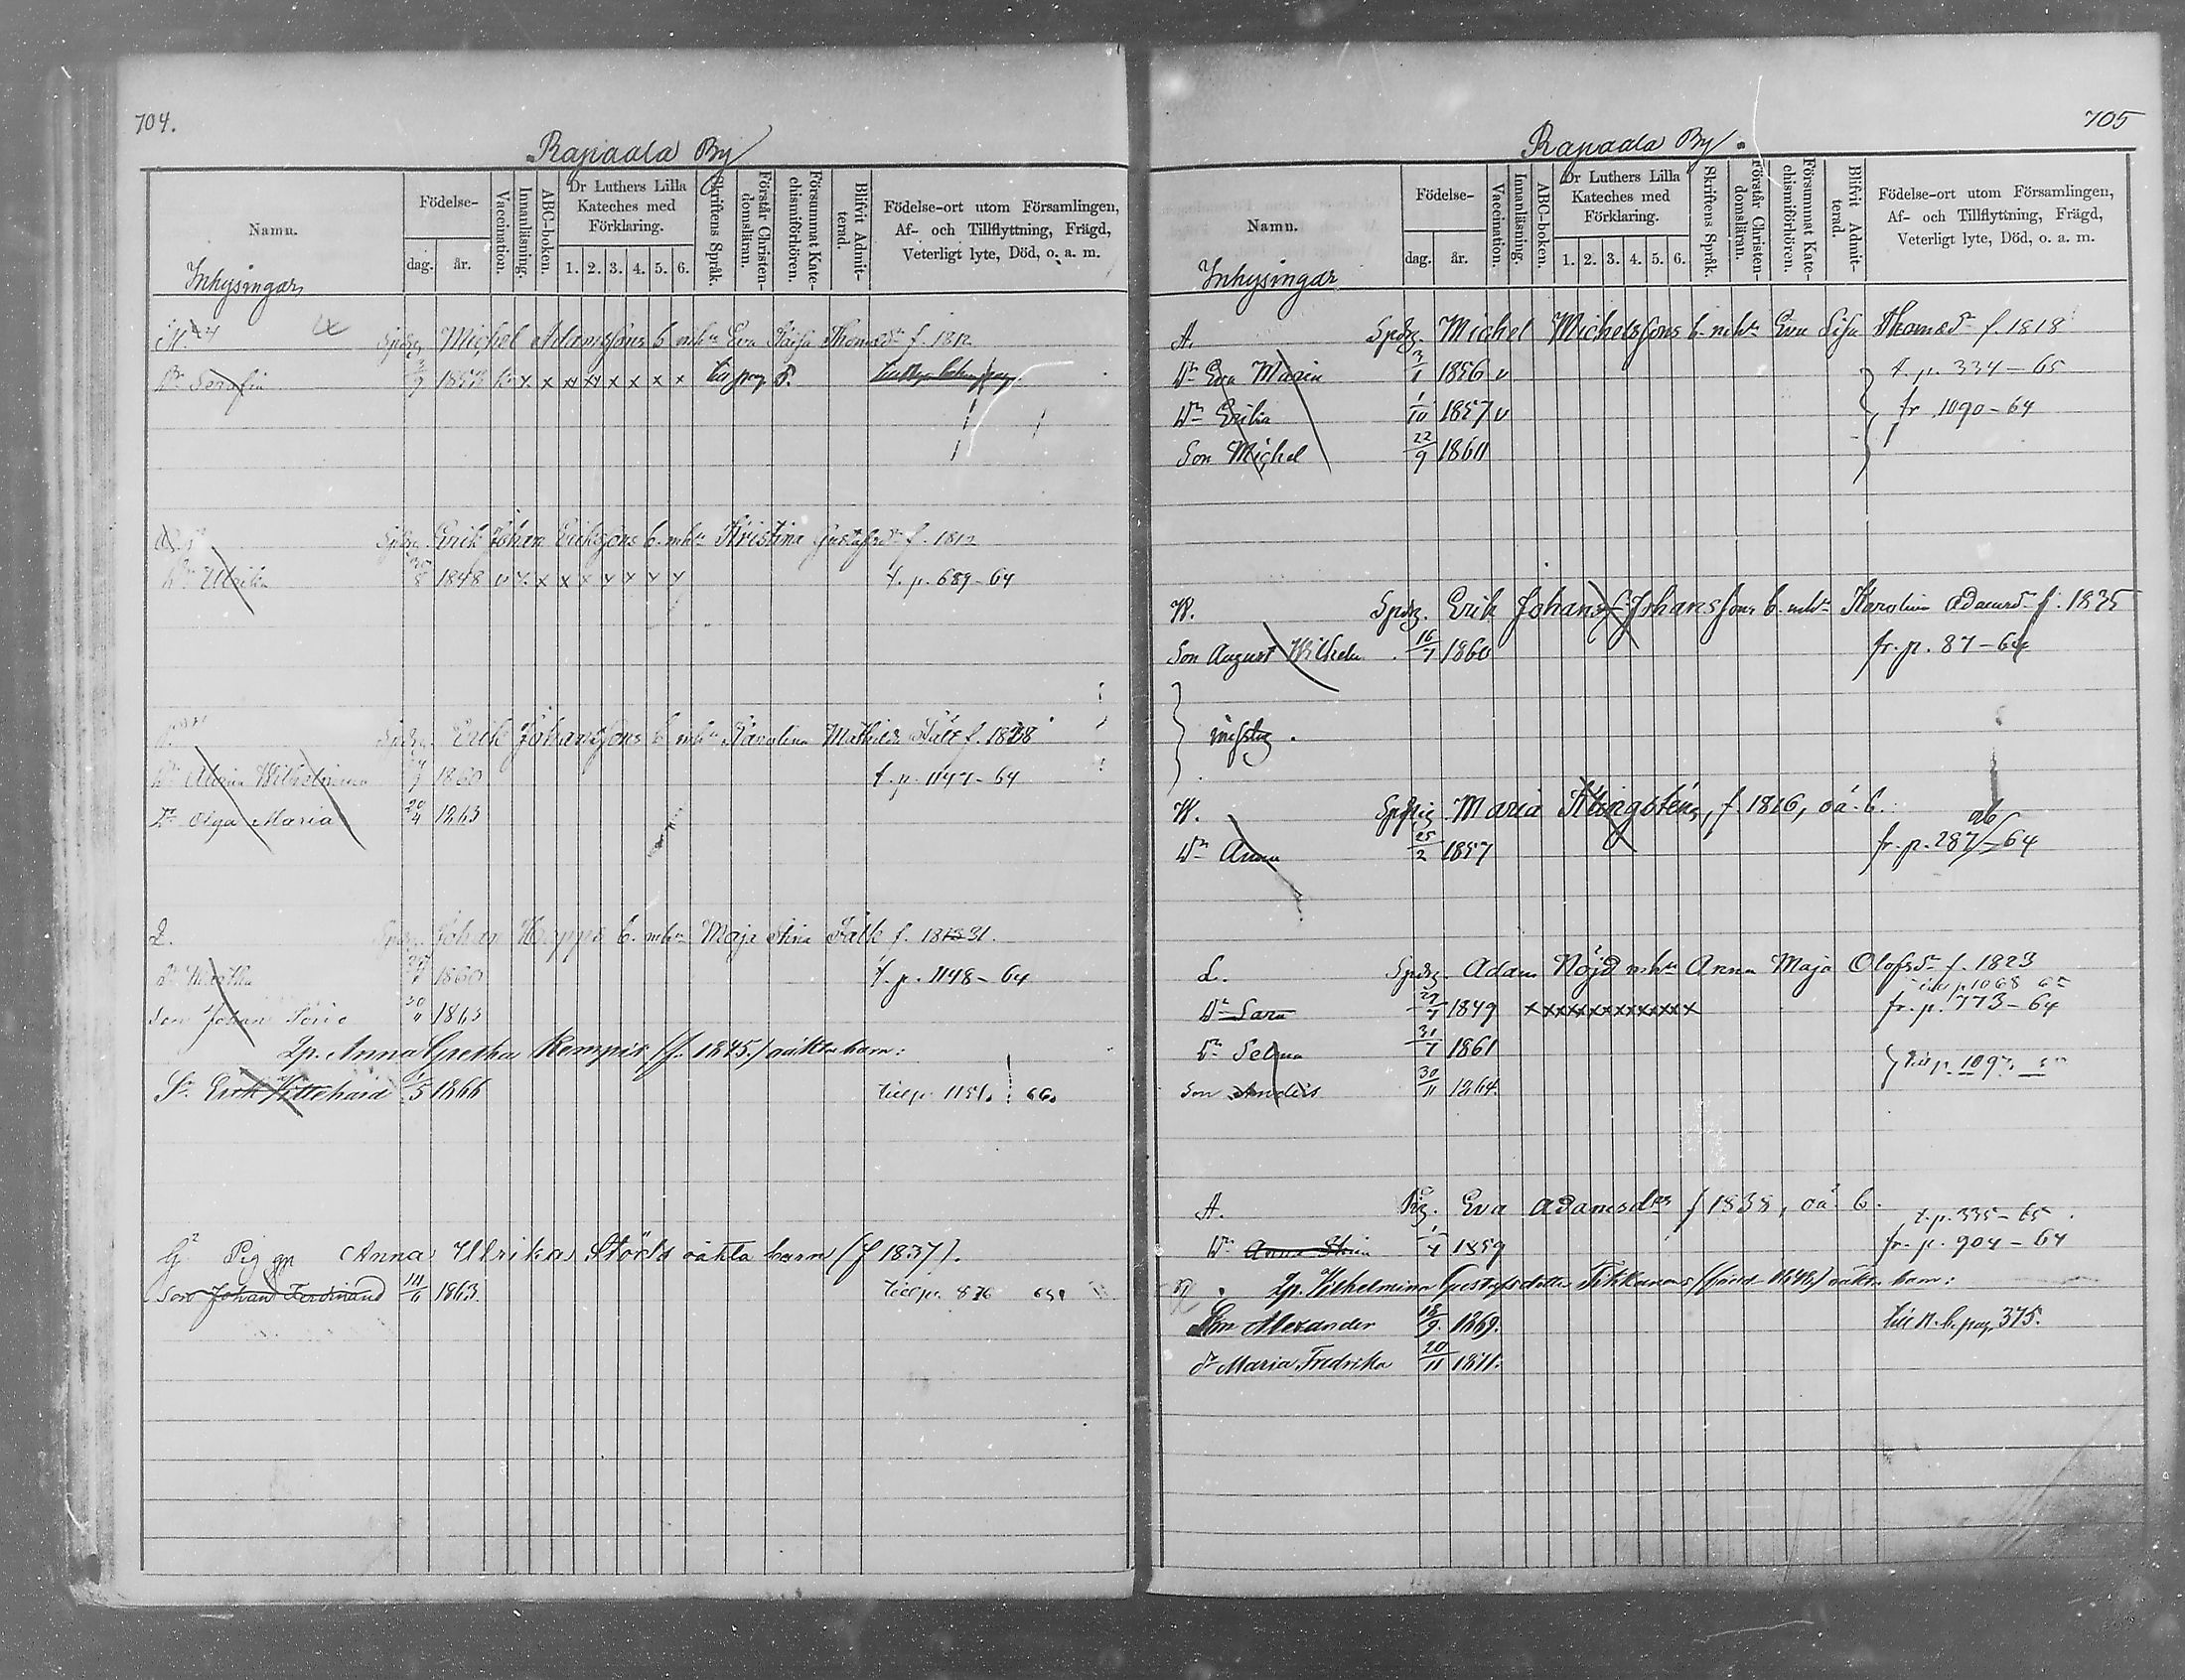 704.
Rapaala By
Namn.
Födelse-
dag.
år.
Vaccination.
Innanläsning.
ABC-boken.
Dr Luthers Lilla Kateches med Förklaring.
1. 2. 3. 4. 5. 6.
Skriftens Språk.
Förstår Christen-domsläran.
Försummat Kate-chismiförhören.
Blifvit Admit-terad.
Födelse-ort utom Församlingen,
Af- och Tillflyttning, Frägd,
Veterligt lyte, Död, o. a. m.
Inhysingar
Michel Adamssons b. mhu Eva Thomsdr f. 1812
Dr Serafia x x x x x x x x
Erik Johan Erikssons b. mhu Kristina Gustafsdr f. 1812
Dr Ulrika 1848 v x x x x x x x t. p. 689-64
Erik Johanssons b. mhu Karolina Mathilda Falk f. 1838
Dr Maria Wilhelmina 1860 t. p. 1147-64
Dr Olga Maria 20/4 1863
L. Johan b. mhu Maja Stina Falk f. 1831.
Dr Martha 1860 t. p. 1148-64
Son Johan 30/11 1863
Anna Gretha f. 1845. oäkta barn:
Sn Erik 1866 till p. 1151. 66.
Pig Anna Ulrika Störds oäkta barn (f 1837).
Son Johan Ferdinand 14/6 1863. till p. 876
705
Rapaala By.
Namn.
Födelse-
dag.
år.
Vaccination.
Innanläsning.
ABC-boken.
Dr Luthers Lilla Kateches med Förklaring.
1. 2. 3. 4. 5. 6.
Skriftens Språk.
Förstår Christen-domsläran.
Försummat Kate-chismiförhören.
Blifvit Admit-terad.
Födelse-ort utom Församlingen,
Af- och Tillflyttning, Frägd,
Veterligt lyte, Död, o. a. m.
Inhysingar
A. Spdg. Michel Michelssons b. mhu Eva Lisa Thomsdr f. 1818
Dr Eva Maria 3/1 1856 v t. p. 334-65
Dr 1/10 1857 v fr 1090-64
Son Michel 22/9 1860
W. Spdg. Erik Johansf. Johanssons b. mhu Karolina Adamsdr f. 1835
Son August Wilhelm 16/7 1860 fr. p. 87-64
W. Maria Klingsten, f 1816, oä. b.
Dr Anna 25/2 1857 fr. p. 287-64
L. Spdg. Adam Nöjd mhu Anna Maja Olofsdr f. 1823
Dr Sara 1849 x x x x x x x x x x x x fr. p. 773-64
Dr Selma 31/7 1861
Son Anders 30/11 1864.
A. Pig. Eva Adamsdr f 1838, oä b. t. p. 335-65
Dr Anna Stina 1859 fr. p. 904-64
Wilhelmina Gustafsdotter Tikkanens (född 1848) oäkta barn:
Son Alexander 18/9. 1869. till n. b. pag. 375.
dr Maria Fredrika 20/11 1871.